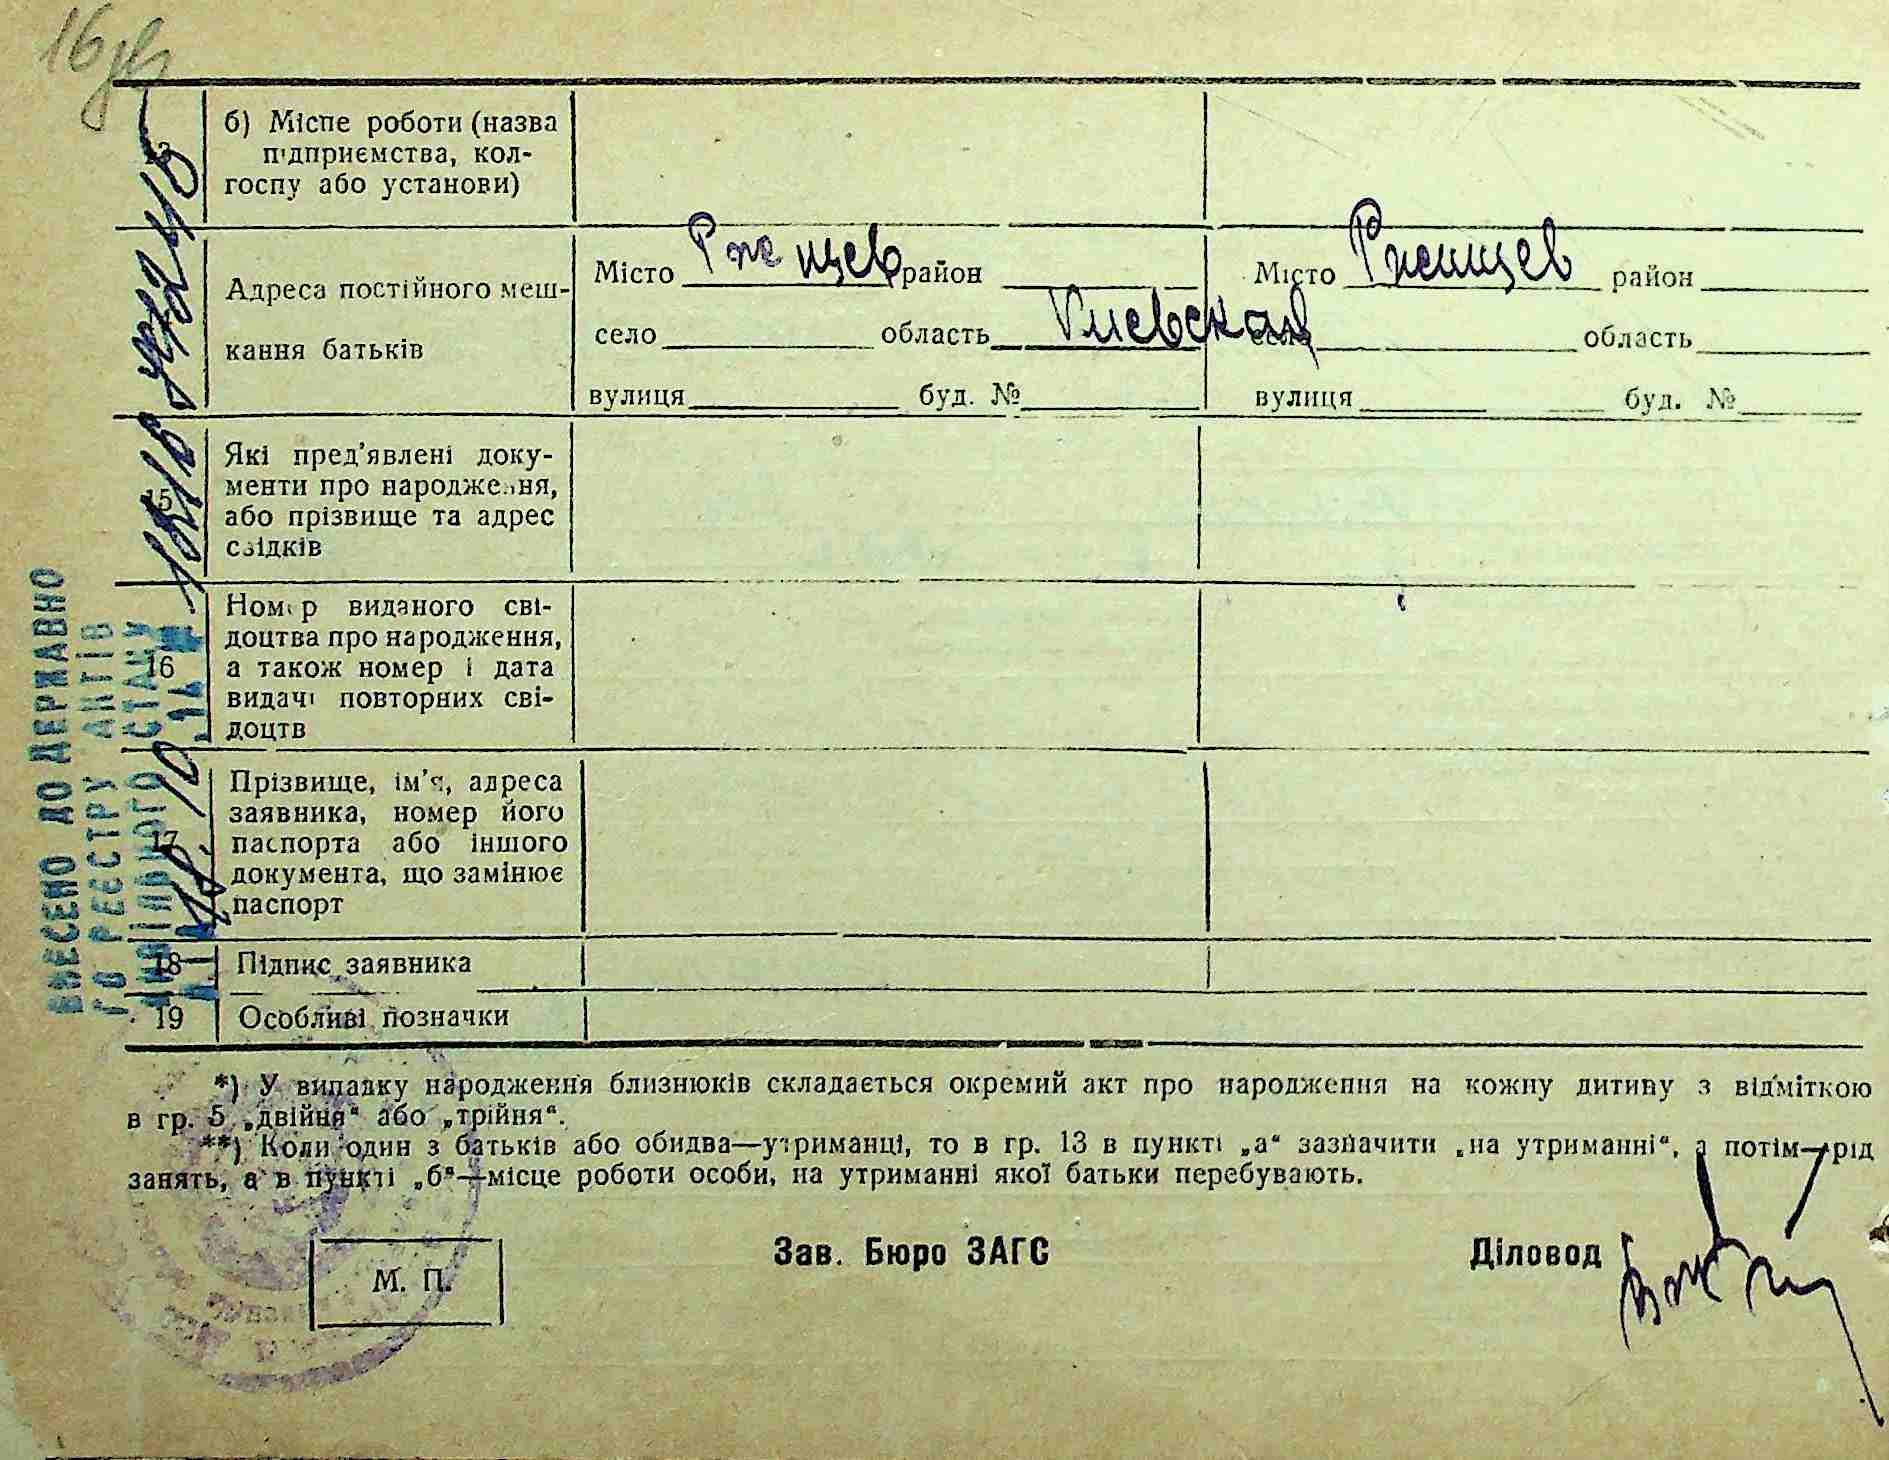 13 б) Місце роботи (назва
підприємства, кол-
госпу або установи)
Адреса постійного меш-
кання батьків
Місто Ржищев район Місто Ржищев район
село область Киевская село область
вулиця буд. № вулиця буд. №
15 Які пред’явлені доку-
менти про народження,
або прізвище та адрес
свідків
16 Номер виданого сві-
доцтва про народження,
а також номер і дата
видачі повторних сві-
доцтв
17 Прізвище, ім’я, адреса
заявника, номер його
паспорта або іншого
документа, що замінює
паспорт
18 Підпис заявника
19 Особливі позначки
ВНЕСЕНО ДО ДЕРЖАВНО
ГО РЕЄСТРУ АКТІВ
ЦИВІЛЬНОГО СТАНУ
*) У випадку народження близнюків складається окремий акт про народження на кожну дитину з відміткою
в гр. 5 „двійня“ або „трійня“.
**) Коли один з батьків або обидва—утриманці, то в гр. 13 в пункті „а“ зазначити „на утриманні“, а потім—рід
занять, а в пункті „б“—місце роботи особи, на утриманні якої батьки перебувають.
М. П.
Зав. Бюро ЗАГС
Діловод